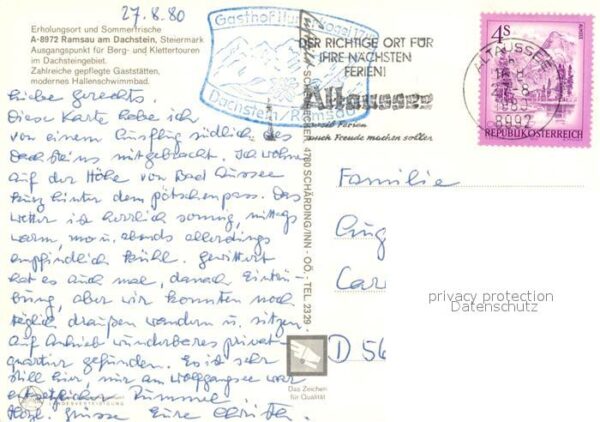 27.8.80
Erholungsort und Sommerfrische
A-8972 Ramsau am Dachstein, Steiermark
Ausgangspunkt für Berg- und Klettertouren
im Dachsteingebiet.
Zahlreiche gepflegte Gaststätten,
modernes Hallenschwimmbad.
Liebe
Diese Karte habe ich
von einem Ausflug südlich des
Dachsteins mitgebracht. Ich wohne
auf der Höhe von Bad Aussee
kurz hinter dem Pötschenpass. Das
Wetter ist herrlich sonnig, mittags
warm, mo u. abends allerdings
empfindlich kühl. Gewittert
hat es auch mal, danach Eintrü-
bung, aber wir konnten noch
täglich draußen wandern u. sitzen.
Auf Anhieb wunderbares Privat-
quartier gefunden. Es ist sehr
still hier, nur am Wolfgangsee war
entsetzlicher Rummel.
Herzl. Grüsse Eure
Gasthof
Dachstein / Ramsau
DER RICHTIGE ORT FÜR
IHRE NÄCHSTEN
FERIEN!
Altaussee
weil Ferien
auch Freude machen sollen
ALTAUSSEE
8992
4S
REPUBLIK ÖSTERREICH
4780 SCHÄRDING/INN - OÖ., TEL 2329
Familie
D 56
Das Zeichen
für Qualität
privacy protection
Datenschutz